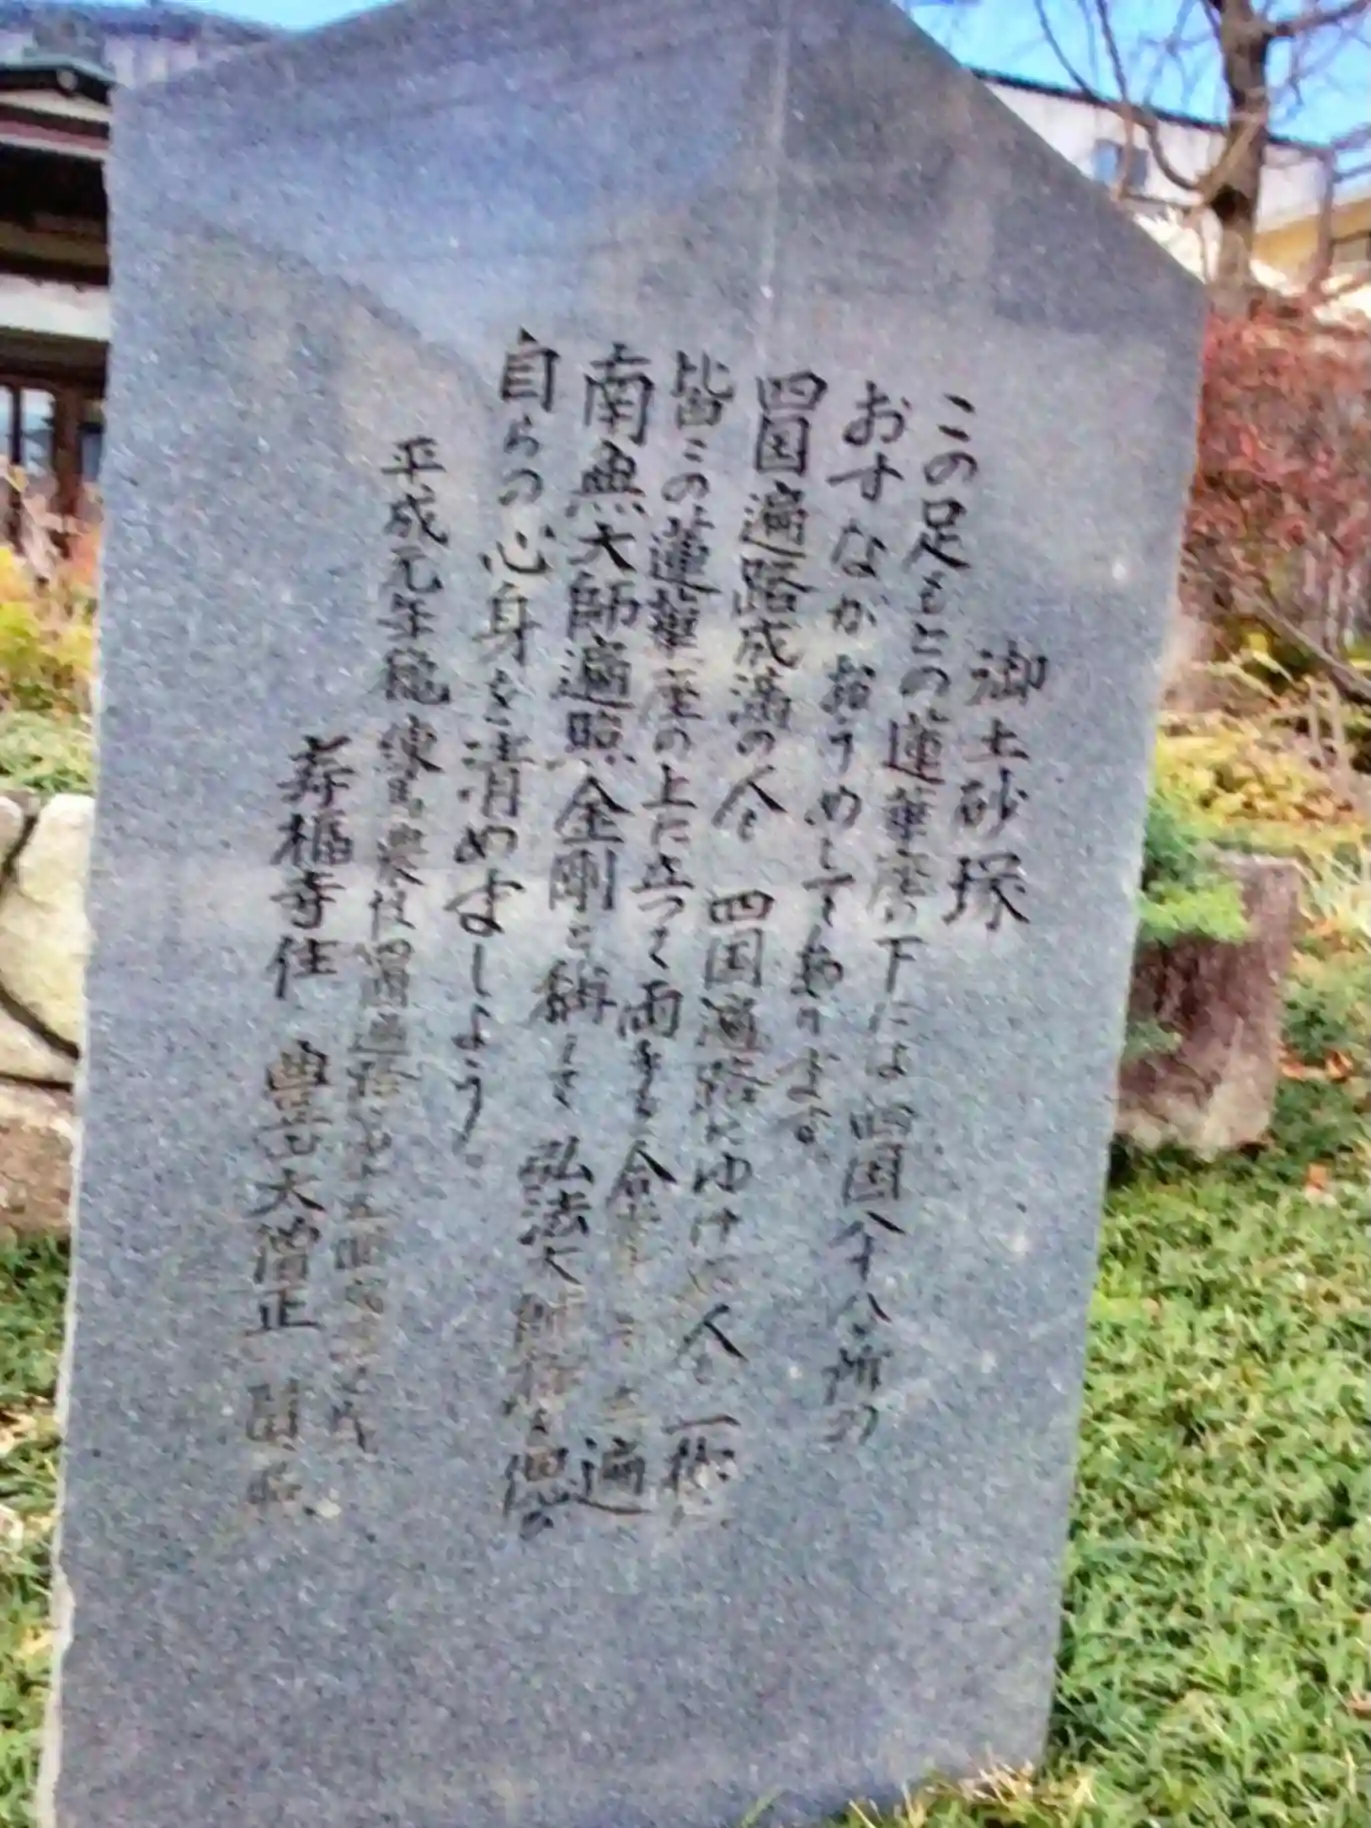 御土砂塚
この足もとの蓮華座の下には四国八十八ヶ所の
おすながおうめしてあります
四国遍路成満の人も 四国遍路にゆけない人も 一様に
皆この蓮華座の上に立って両手を合せ 遍
南無大師遍照金剛と称えて 弘法大師様の徳で
自らの心身を清めましよう
平成元年 練馬農住 四国遍路
寿福寺住 豊山大僧正